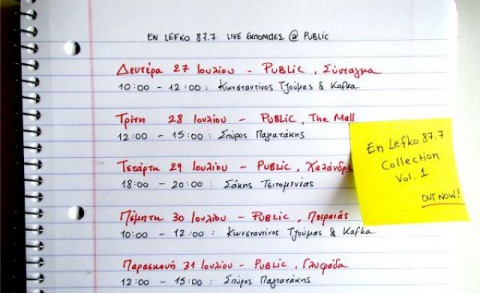 EN LEFKO 87.7 LIVE ΕΚΠΟΜΠΕΣ @ PUBLIC
Δευτέρα 27 Ιουλίου - PUBLIC, Σύνταγμα
10:00 - 12:00 : Κωνσταντίνος Τζούμας & Kafka
Τρίτη 28 Ιουλίου - PUBLIC, The Mall
12:00 - 15:00 : Σπύρος Παγιατάκης
Τετάρτη 29 Ιουλίου - PUBLIC, Χαλάνδρι
18:00 - 20:00 : Σάκης
Πέμπτη 30 Ιουλίου - PUBLIC, Πειραιάς
10:00 - 12:00 : Κωνσταντίνος Τζούμας & Kafka
Παρασκευή 31 Ιουλίου - PUBLIC, Γλυφάδα
12:00 - 15:00 : Σπύρος Παγιατάκης
En Lefko 87.7
Collection
Vol. 1
OUT NOW!